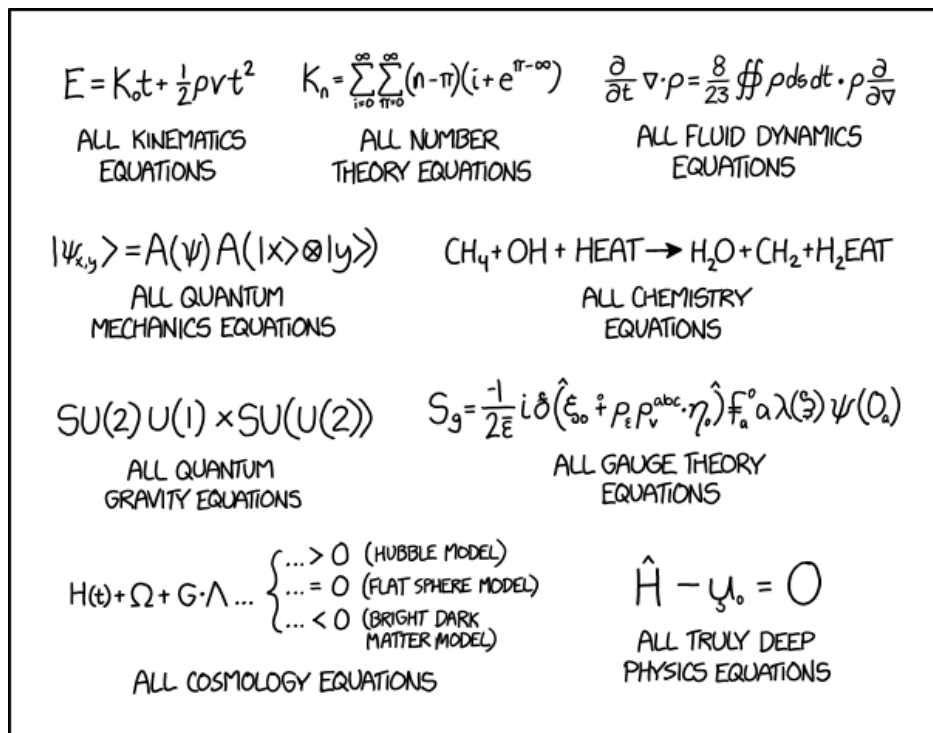 E = K₀t + ½ρvt²
ALL KINEMATICS
EQUATIONS
Kₙ = ∑_{i=0}^{∞} ∑_{π=0}^{∞} (n-π)(i+e^{π-∞})
ALL NUMBER
THEORY EQUATIONS
∂/∂t ∇·ρ = 8/23 ∯ ρ ds dt · ρ ∂/∂∇
ALL FLUID DYNAMICS
EQUATIONS
|ψ_{x,y}⟩ = A(ψ) A(|x⟩⊗|y⟩)
ALL QUANTUM
MECHANICS EQUATIONS
CH₄ + OH + HEAT → H₂O + CH₂ + H₂EAT
ALL CHEMISTRY
EQUATIONS
SU(2) U(1) × SU(U(2))
ALL QUANTUM
GRAVITY EQUATIONS
S_g = -1/2ε̄
ALL GAUGE THEORY
EQUATIONS
H(t) + Ω + G·Λ ...
... > 0 (HUBBLE MODEL)
... = 0 (FLAT SPHERE MODEL)
... < 0 (BRIGHT DARK
MATTER MODEL)
ALL COSMOLOGY EQUATIONS
Ĥ - u̧₀ = 0
ALL TRULY DEEP
PHYSICS EQUATIONS